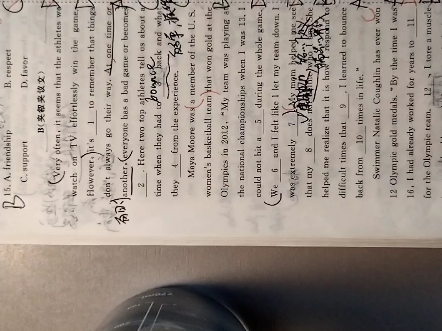 15. A. friendship B. respect
C. support D. favor
B(夹叙夹议文)
Very often, it seems that the athletes we
watch on TV effortlessly win the game
However, it's 1 to remember that thing
don't always go their way. At one time or
another, everyone has a bad game or become
2 . Here two top athletes tell us about
time when they had back and wh
they 4 from the experience.
Maya Moore was a member of the U. S.
women's basketball team that won gold at the
Olympics in 2012. "My team was playing a
the national championships when I was 13. I
could not hit a 5 during the whole game.
We 6 and I felt like I let my team down. I
was extremely 7 . My mom helped me see
that my 8 does the
helped me realize that it is how I respond to
difficult times that 9 . I learned to bounce
back from 10 times in life."
Swimmer Natalie Coughlin has ever won
12 Olympic gold medals. "By the time I was
16, I had already worked for years to 11
for the Olympic team. 12 , I tore a muscle